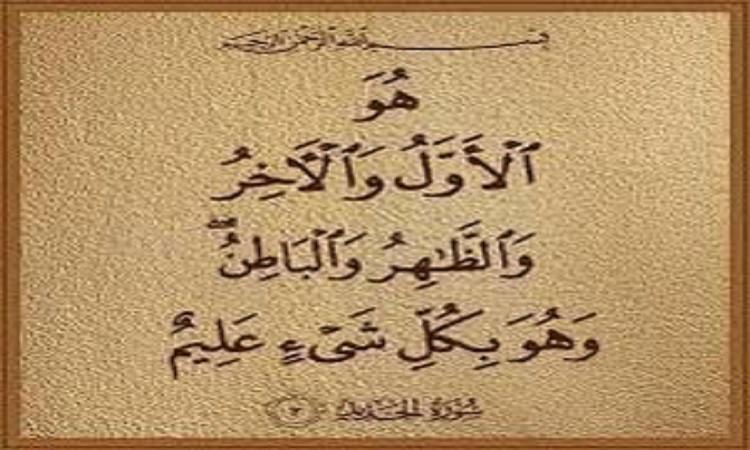 بسم الله الرحمن الرحيم
هُوَ
ٱلْأَوَّلُ وَٱلْآخِرُ
وَٱلظَّٰهِرُ وَٱلْبَاطِنُ ۖ
وَهُوَ بِكُلِّ شَىْءٍ عَلِيمٌ
سُورَةُ الحَدِيد ٣